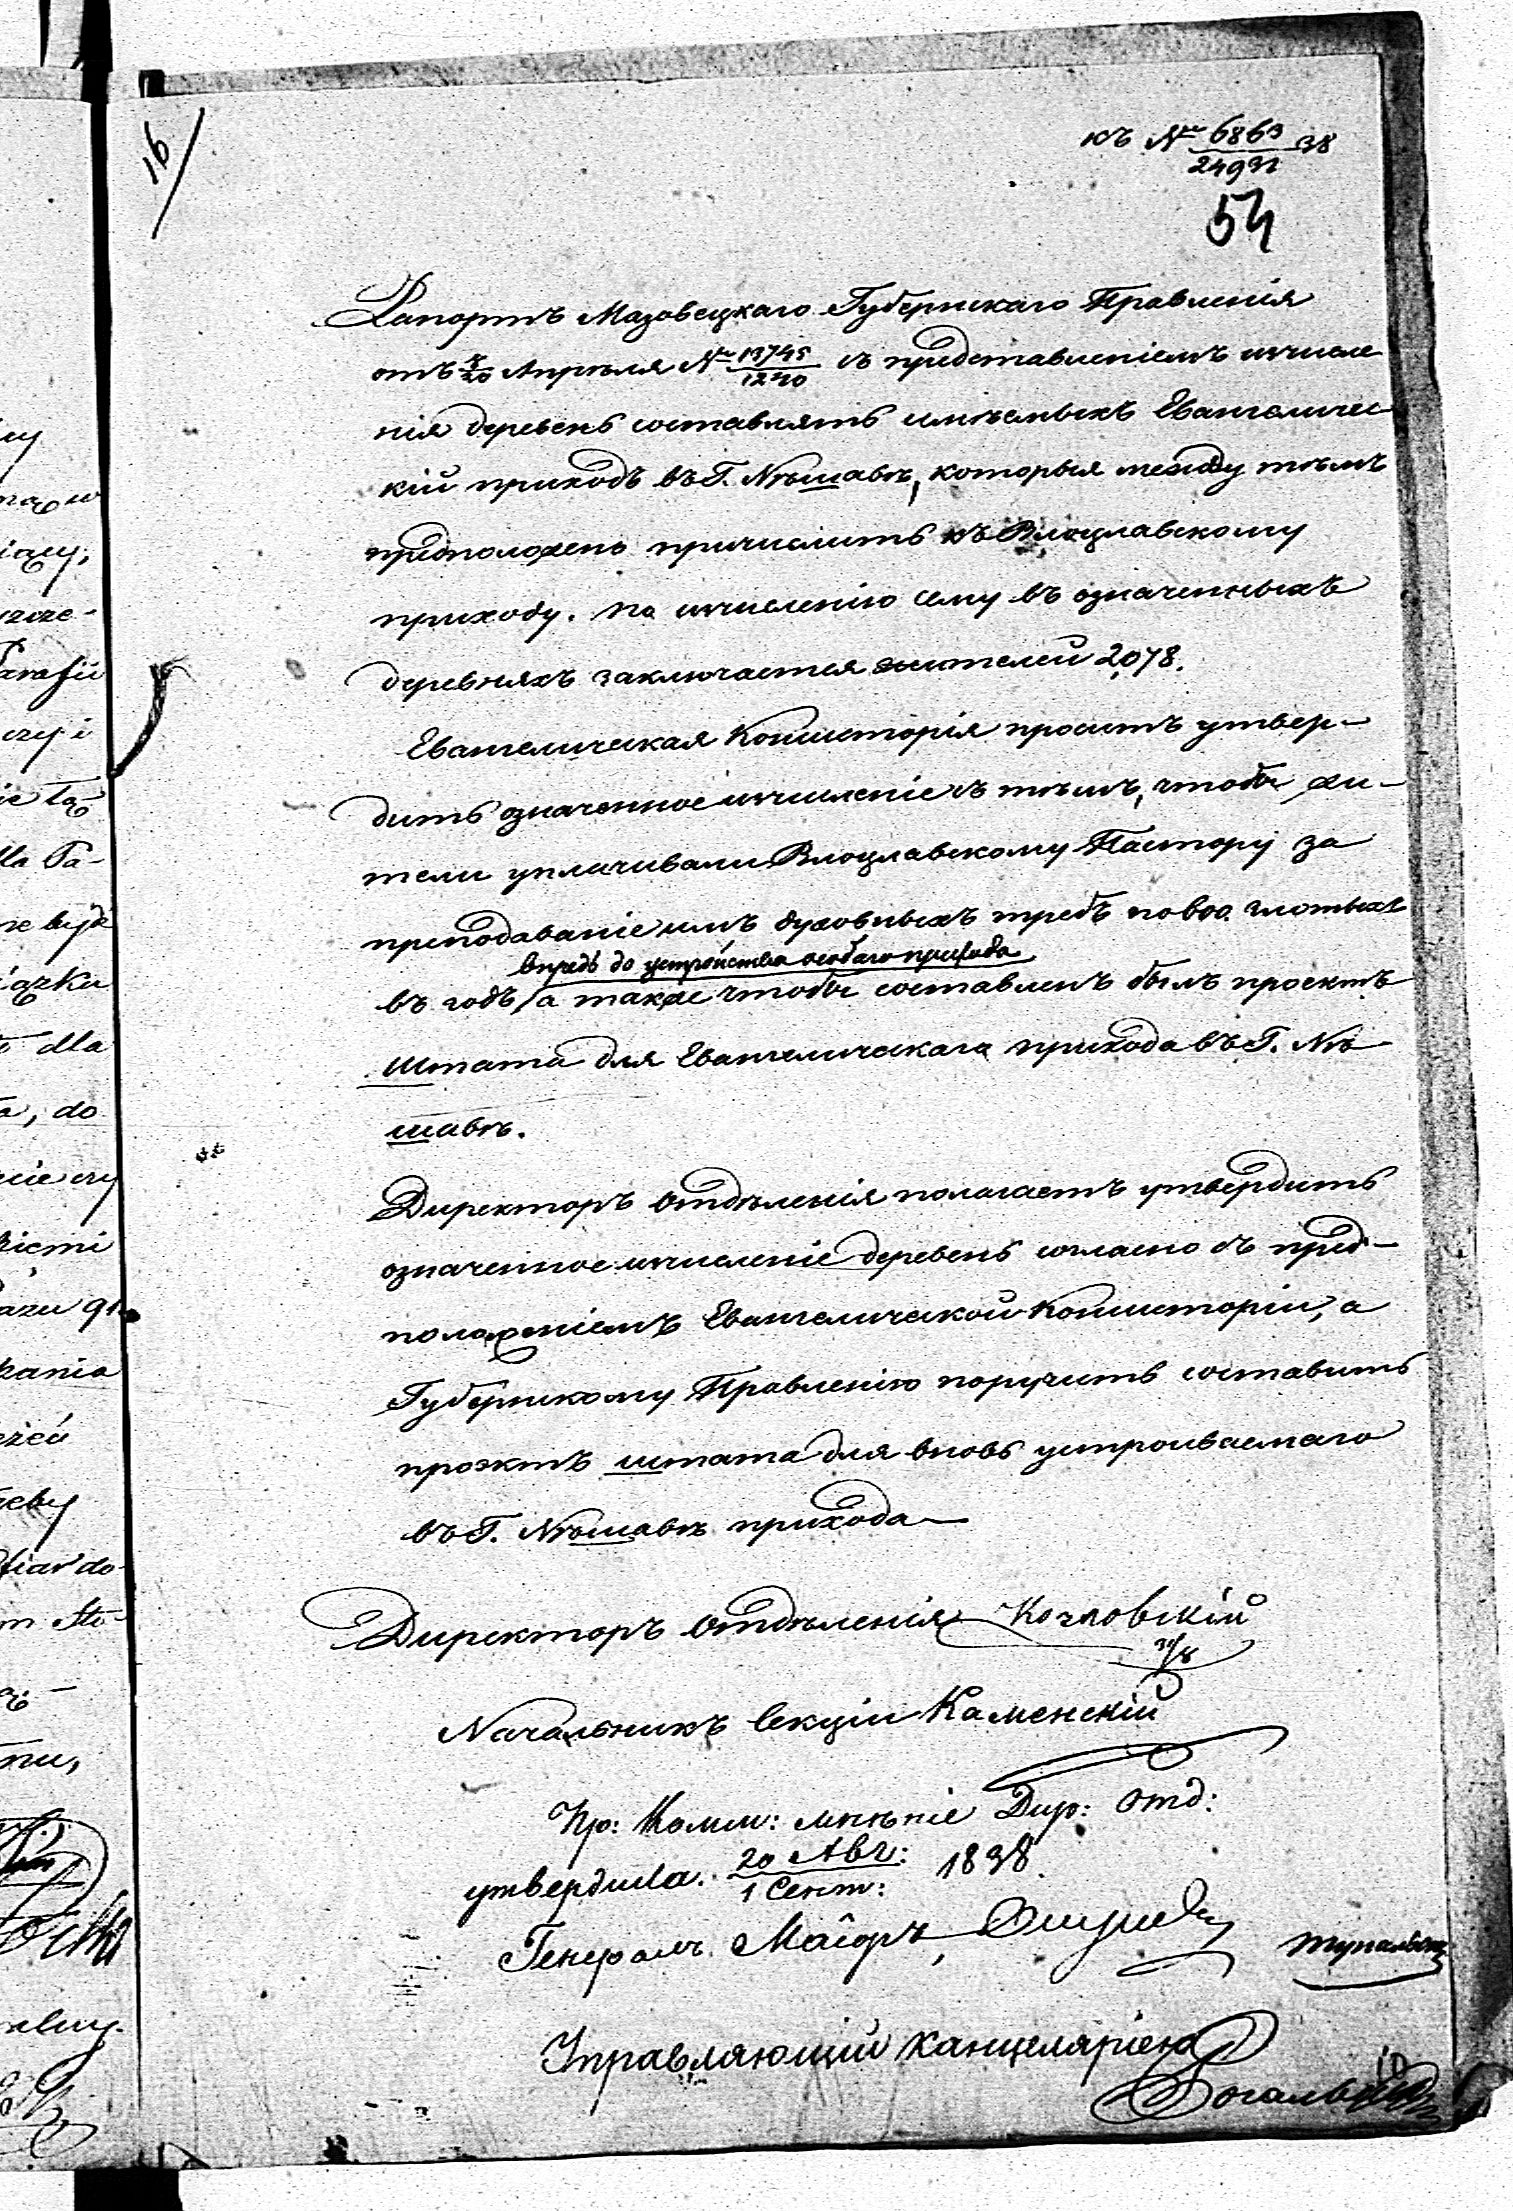 къ № 6863/24932 38
54
16
Рапортъ Мазовецкаго Губернскаго Правленія
отъ 8/20 Апрѣля № 13745/1240 съ представленіемъ исчисле
нія деревень составлять имѣемыхъ Евангеличес-
кій приходъ въ Г. Нѣшавѣ, которыя между тѣмъ
предположено причислить къ Влоцлавскому
приходу. По исчисленію сему въ означенныхъ
деревняхъ заключается жителей 2,078.
Евангелическая Консисторія проситъ утвер-
дить означенное исчисленіе съ тѣмъ, чтобы жи-
тели уплачивали Влоцлавскому Пастору за
преподаваніе имъ духовныхъ требъ по 600 злотыхъ
впредь до устройства особаго прихода
въ годъ, а также чтобы составленъ былъ проектъ
Штата для Евангелическаго прихода въ Г. Нѣ-
шавѣ.
Директоръ Отдѣленія полагаетъ утвердить
означенное исчисленіе деревень согласно съ пред-
положеніемъ Евангелической Консисторіи, а
Губернскому Правленію поручить составить
проэктъ штата для вновь устроиваемаго
въ Г. Нѣшавѣ прихода
Директоръ Отдѣленія Козловскій
31/8
Начальникъ Секціи Каменскій
Пр: Комм: мнѣніе Дир: Отд:
утвердила. 20 Авг:/1 Сент: 1838
Генералъ Маіоръ,
Управляющій Канцеляріею